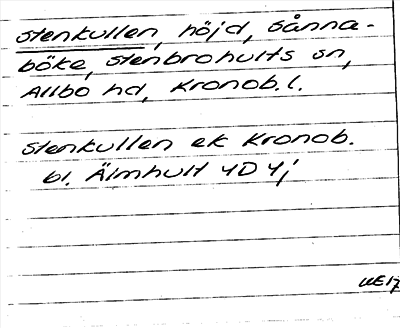 Stenkullen, höjd, Sånna-
böke, Stenbrohults sn,
Allbo hd, Kronob. l.
Stenkullen ek Kronob.
bl. Älmhult 4D 4j